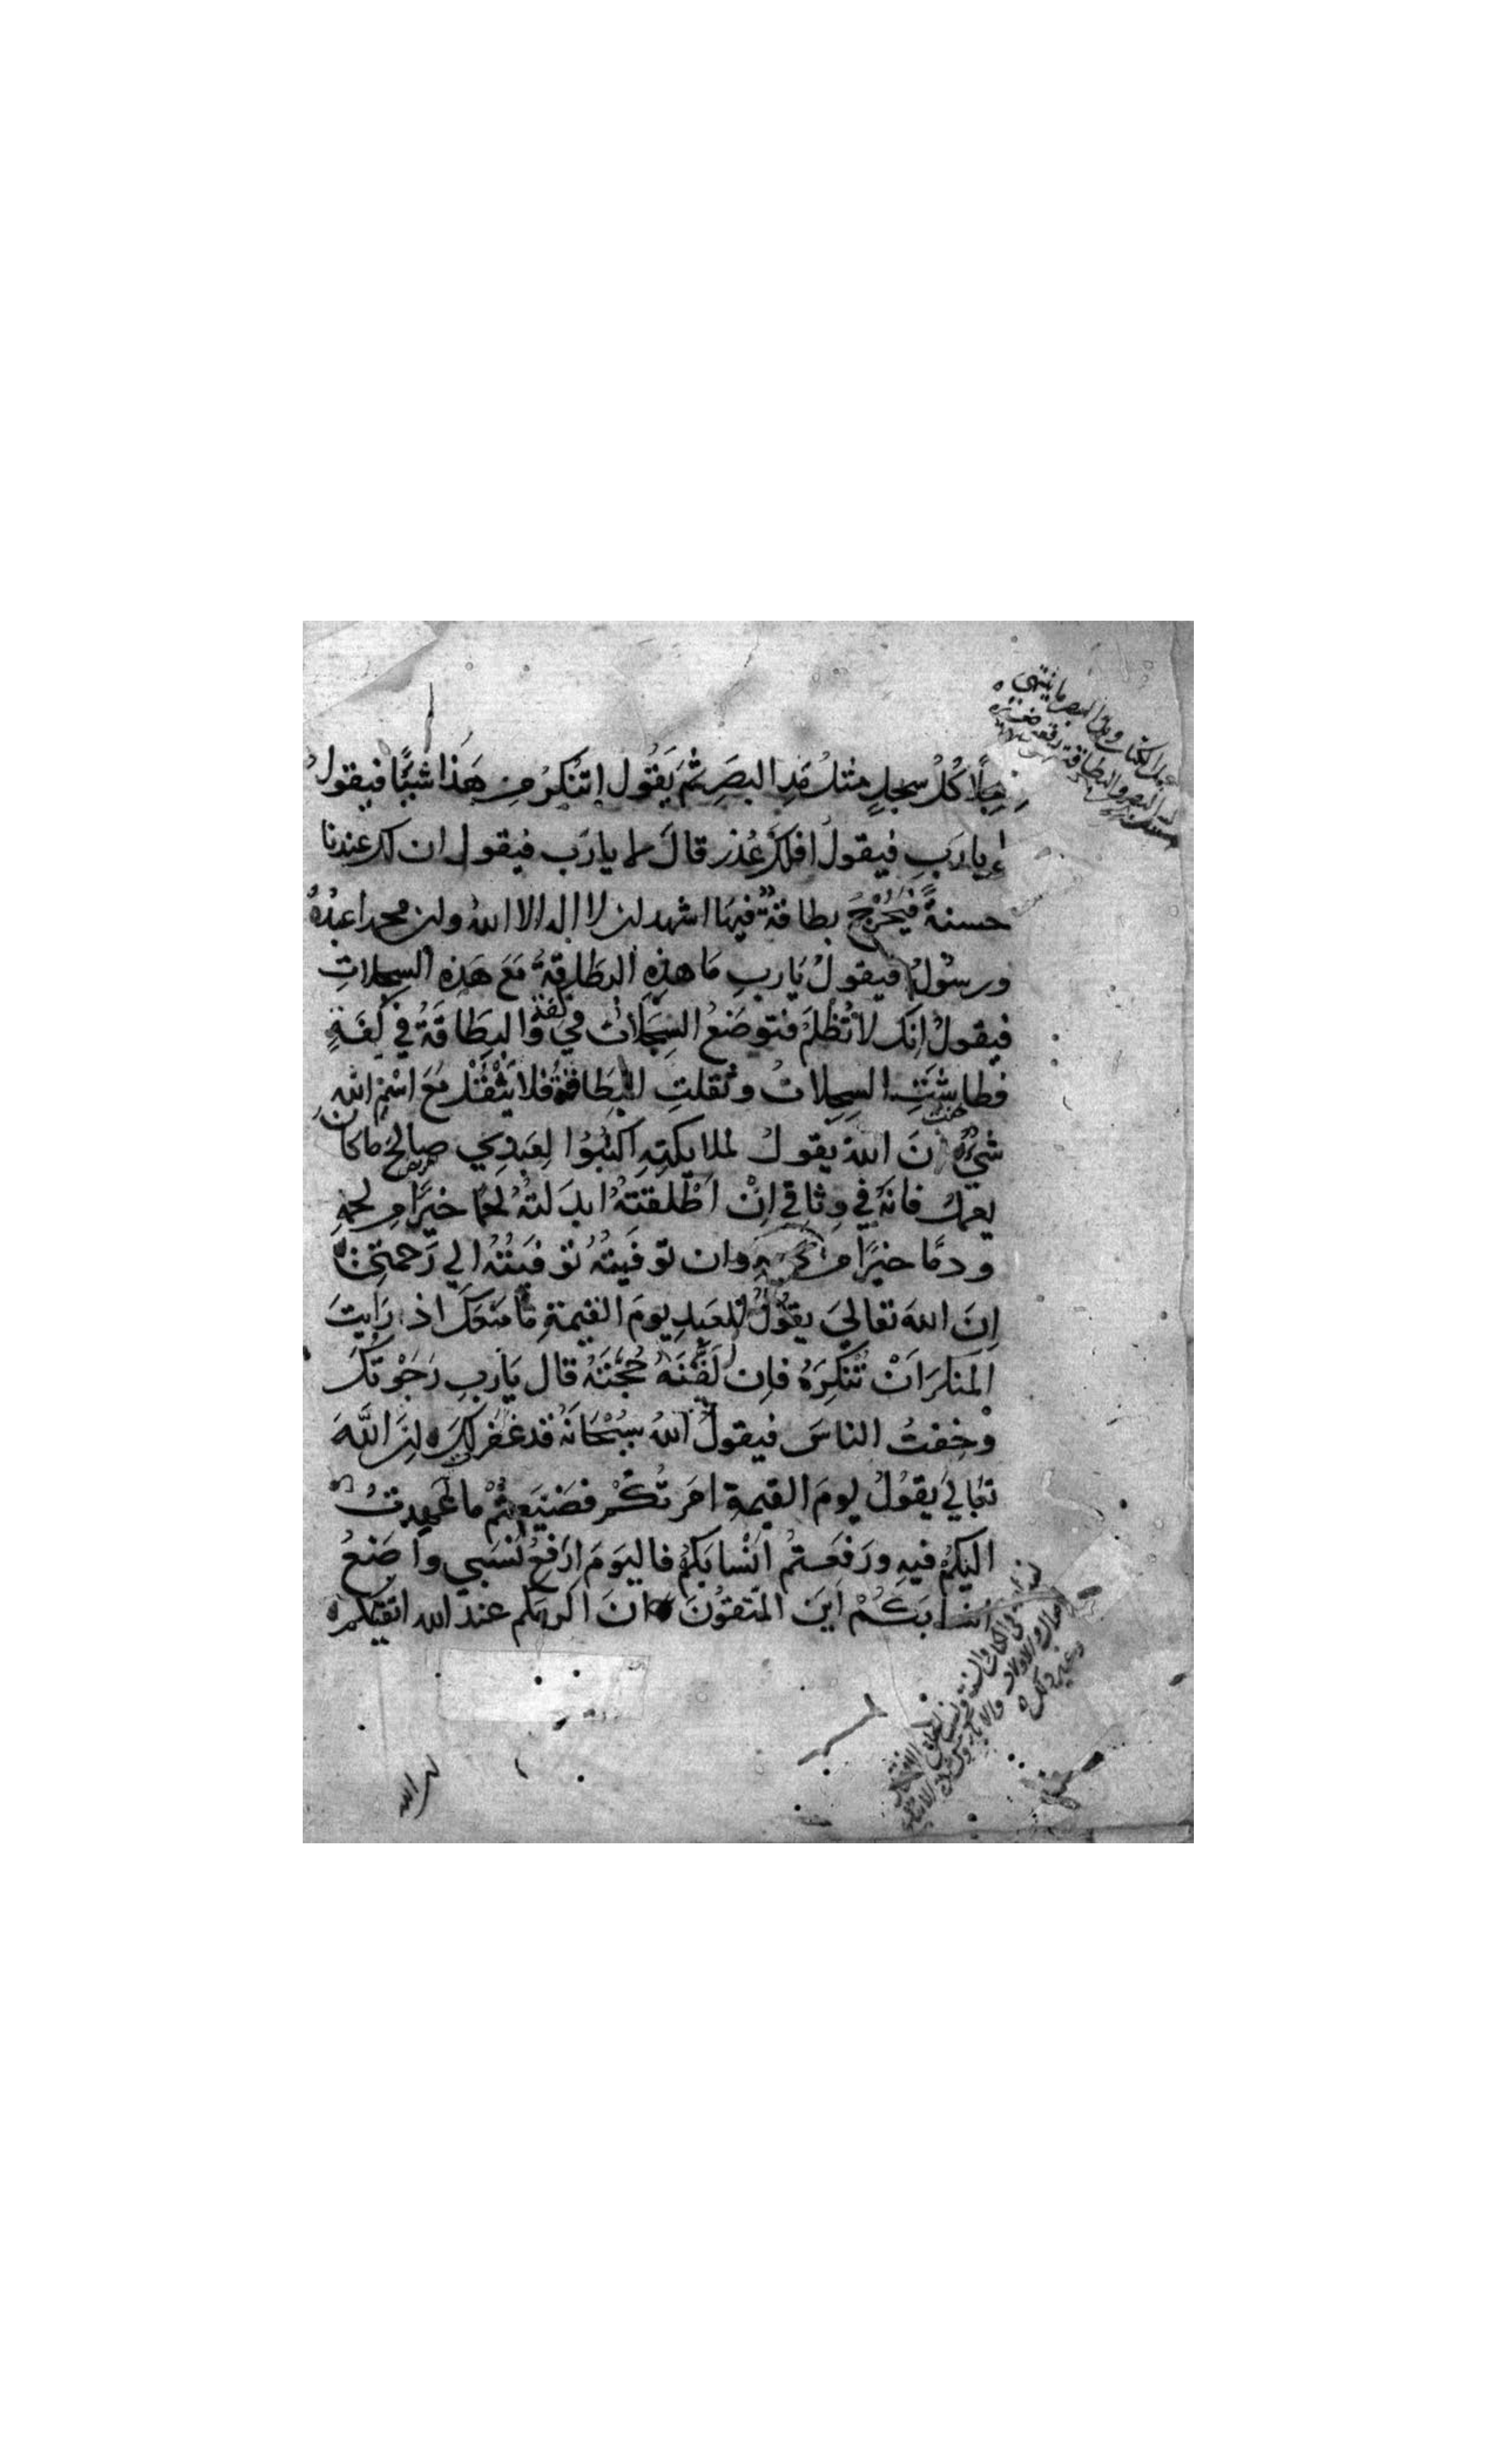 سجلا كُلُ سجلٍ مثلُ مَدِ البصَرِ ثمَ يَقُول اتنكرُ من هَذا شيًا فيقولُ
يا رَبِ فيقولُ افلكَ عُذر قالَ لا يا رَب فيقول ان لك عندنا
حسنةً فيُخرْجُ بطاقةٌ فيها اشهد ان لا اله الا اللهُ وان محمدا عبدُهُ
ورسُولُه فيقولُ يَا ربِ مَا هذِهِ البطَاقةُ مَعَ هَذِهِ السِجلاتِ
فيقولُ اِنكَ لا تُظلَمُ فتوضَعُ السِجَلاتُ في كفة وَالبِطَاقَةُ في كفَةٍ
فطاشَتِ السِجلاتُ وثقلتِ البِطَاقةُ فلا يَثْقُلُ مَعَ اسْمِ اللهِ
شيءٌ اِنَ اللهَ يقولُ لملايكتِهِ اكتبُوا لِعَبدِي صالحَ ما كان
يعملُ فانهُ في وِثاقي اِنْ اَطْلقتهُ ابدَلتهُ لَحمًا خيرًا من لحمهِ
ودمًا خيرًا من دمه وان توفيتهُ توفيتُهُ الي رَحمتِي
اِنَ اللهَ تعاليَ يقُولُ للعَبدِ يومَ القيمةِ مَا منعَكَ اذ رَايتَ
المنكرَ اَنْ تُنكِرَهُ فاِن لَقَّنَهُ حُجَّتَهُ قال يَا ربِ رَجَوْتكَ
وخِفتُ الناسَ فيقولُ اللهُ سبْحَانَهُ قد غفر لكَ ان اللَّهَ
تعَاليَ يقُولُ يومَ القيمةِ امَرتُكمْ فضَيّعتُمْ ما عَهِدتُ
اليكُمْ فيهِ ورَفعتمْ اَنْسابَكمْ فاليَومَ ارْفعُ نَسَبي واَضَعُ
اَنسابَكُمْ اَينَ المتقوْنَ اِنَ اكرمَكم عندَ الله اتقيكم